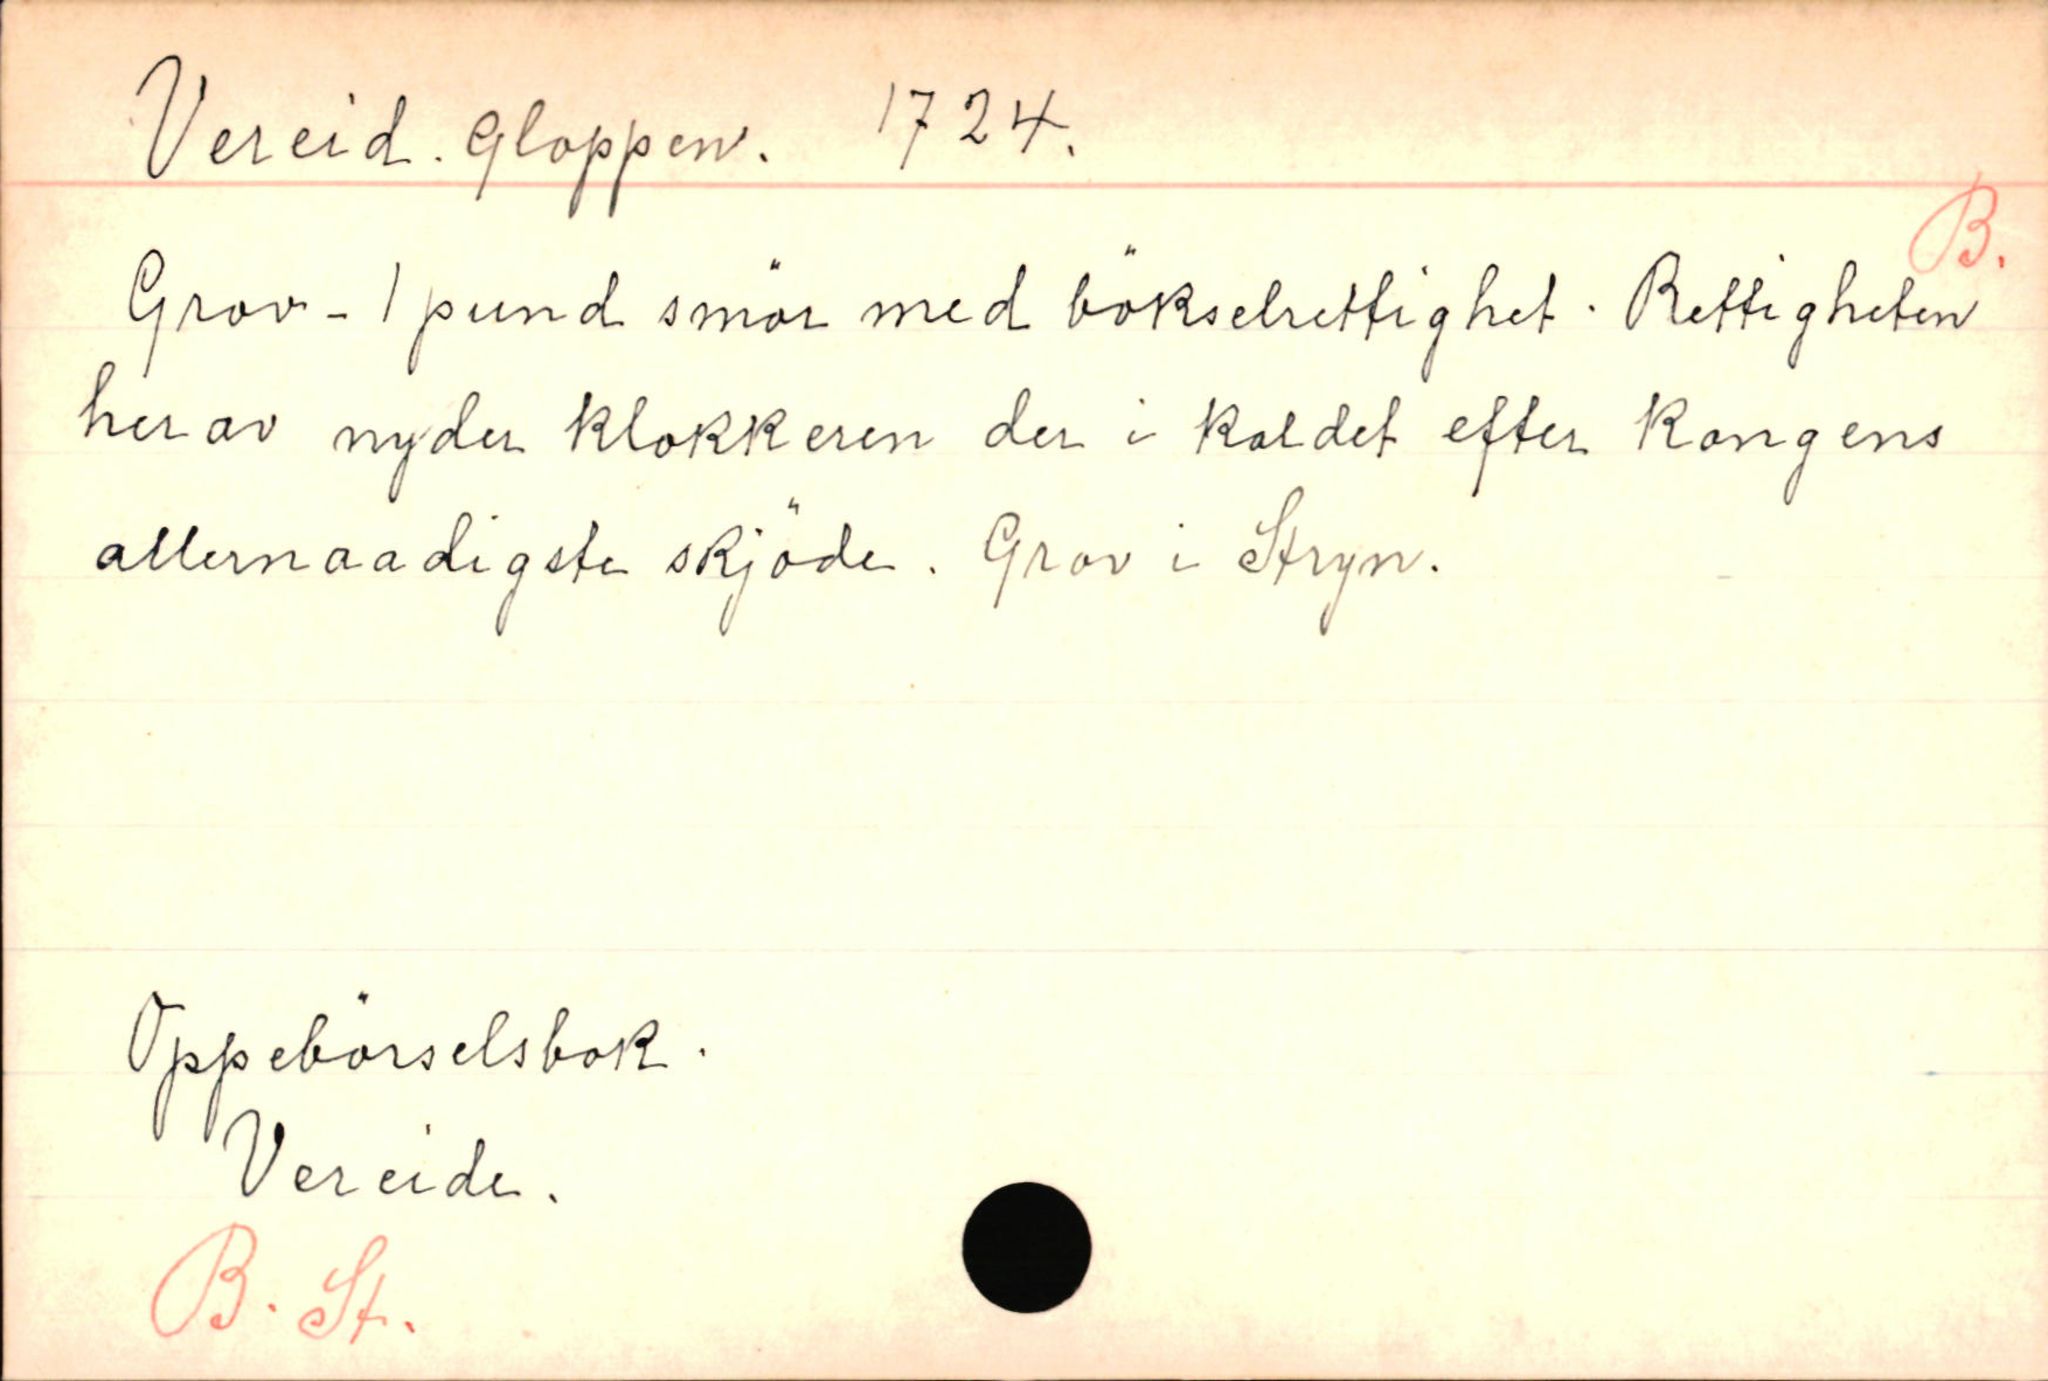 Vereid. Gloppen. 1724.
B.
Grov - 1 pund smör med bökselrettighet. Rettigheten
herav nyder klokkeren der i kaldet efter kongens
allernaadigste skjöde. Grov i Stryn.
Oppebörselsbok.
Vereide.
B. St.